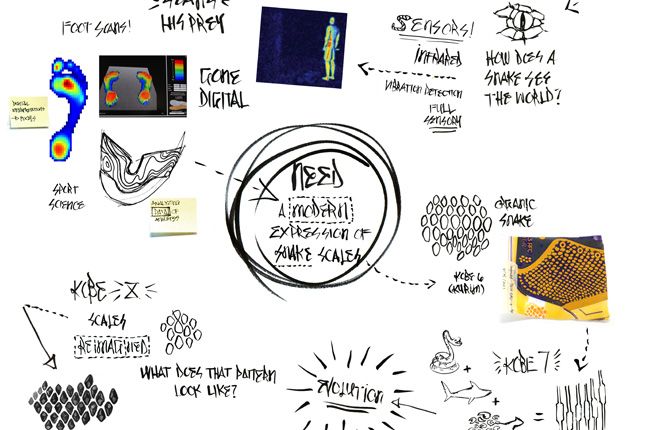 HIS PREY
FOOT SCANS!
GONE
DIGITAL
SENSORS!
INFRARED
VIBRATION DETECTION
FULL
SENSORY
HOW DOES A
SNAKE SEE
THE WORLD?
SPORT
SCIENCE
DATA OF
NEED
A MODERN
EXPRESSION OF
SNAKE SCALES
ORGANIC
SNAKE
KOBE 6
KOBE 8
SCALES
REIMAGINED
WHAT DOES THAT PATTERN
LOOK LIKE?
EVOLUTION
KOBE 7
+
+
=